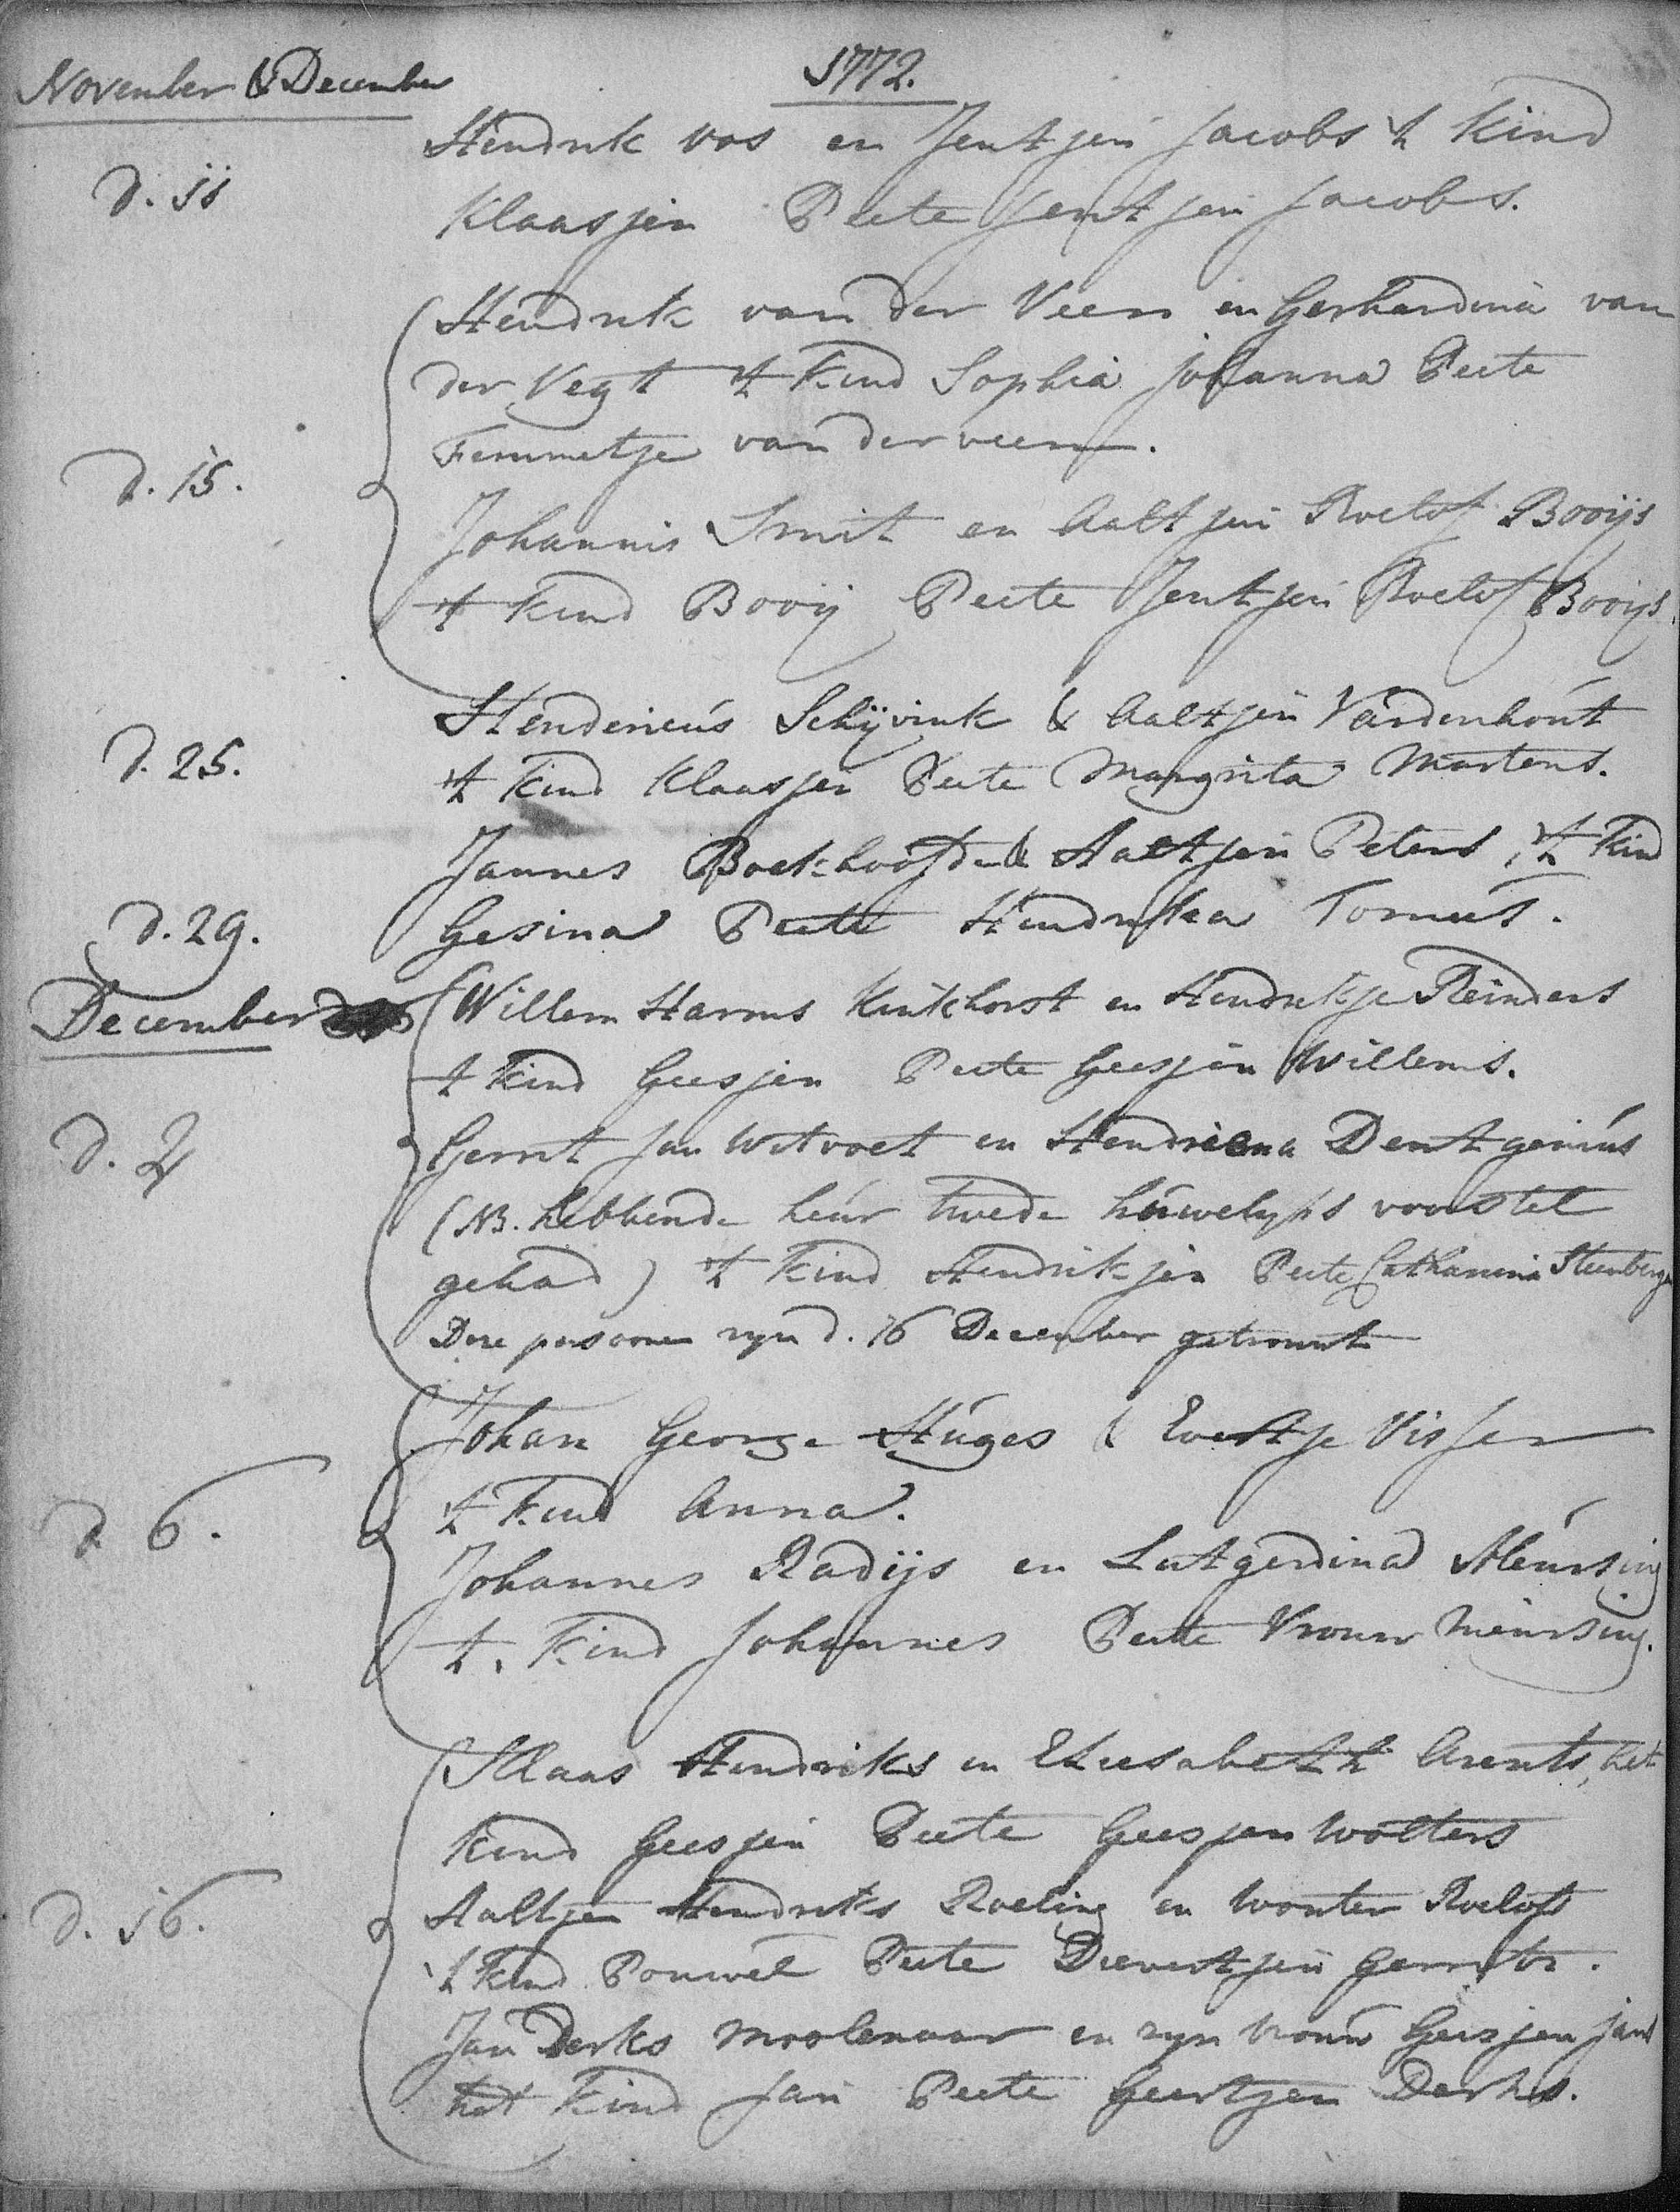 November & December
1772.
d. 11
Hendrik vos en Jentjen Jacobs 't Kind
Klaasjen Peete Jentjen Jacobs.
d. 15.
Hendrik van der Veen en Gerhardina van
der Vegt 't Kind Sophia Johanna Peete
Femmetje van der veen.
Johannis Smit en Aaltjen Roelof Booijs
't Kind Booij Peete Jentjen Roelof Booijs.
d. 25.
Hendericus Schijvink & Aaltjen Vardenhout
't Kind Klaasjen Peete Margrita Martens.
d. 29.
Jannes Boekhoofde & Aaltjen Peters, 't Kind
Gesina Peete Hendrika
December
d. 2
(Willem Harms Kinkhorst en Hendrikje Reinders
't Kind Geesjen Peete Geesjen Willems.
Gerrit Jan Witvoet en Hendriena
(NB. hebbende heur twede houwelyks voorstel
gehad) 't Kind Hendrikjen Peete Catharina Steenberge
Deze persoonen zyn d. 16 December getrouwt
d. 6.
Johan George Huges & Evertje Visser
't Kind Anna.
Johannes Radijs en Lutgerdina Meursing
't Kind Johannes Peete Vrouw Meursing.
d. 16.
(Klaas Hendriks en Eliesabeth Arents, het
Kind Geesjen Peete Geesjen Wolters
Aaltjen Hendriks Roeling en Wouter Roelofs
't Kind Pouwel Peete Dievertjen Gerrits.
Jan Derks Moolenaar en zyn vrouw Geesjen Jans
het Kind Jan Peete Geertjen Derks.